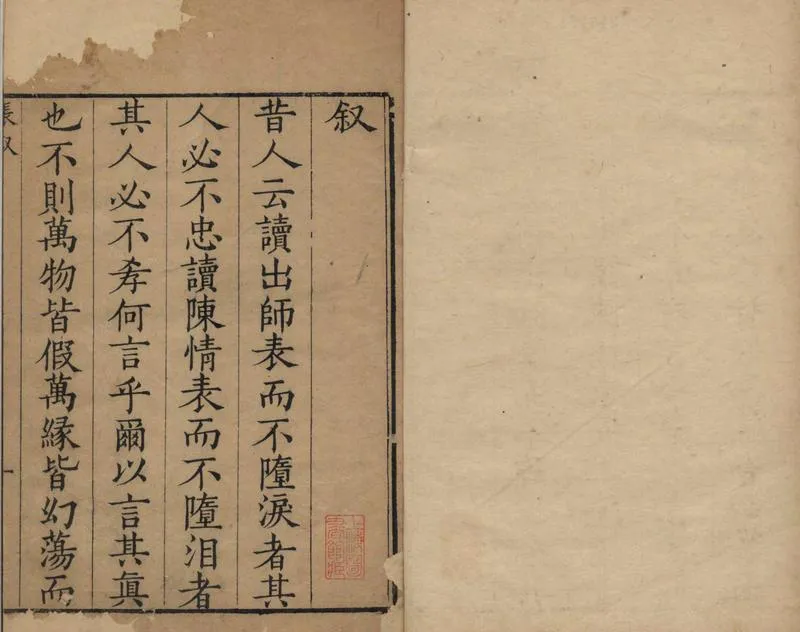 叙
昔人云讀出師表而不墮淚者其
人必不忠讀陳情表而不墮泪者
其人必不孝何言乎爾以言其眞
也不則萬物皆假萬緣皆幻蕩而
張叙
一